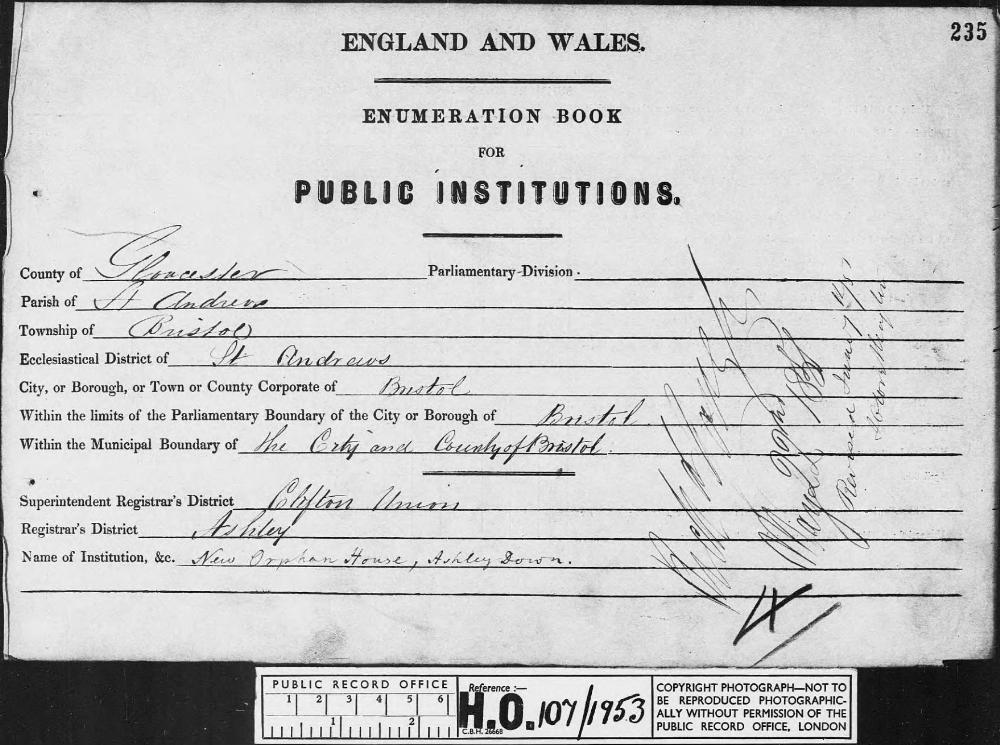 235
ENGLAND AND WALES.
ENUMERATION BOOK
FOR
PUBLIC INSTITUTIONS.
County of Gloucester Parliamentary Division
Parish of St Andrews
Township of Bristol
Ecclesiastical District of St Andrews
City, or Borough, or Town or County Corporate of Bristol
Within the limits of the Parliamentary Boundary of the City or Borough of Bristol
Within the Municipal Boundary of the City and County of Bristol.
Superintendent Registrar's District Clifton Union
Registrar's District Ashley
Name of Institution, &c. New Orphan House, Ashley Down.
PUBLIC RECORD OFFICE
1 2 3 4 5 6
1 2
Reference :—
H.O. 107/1953
C.B.H. 26668
COPYRIGHT PHOTOGRAPH—NOT TO
BE REPRODUCED PHOTOGRAPHIC-
ALLY WITHOUT PERMISSION OF THE
PUBLIC RECORD OFFICE, LONDON